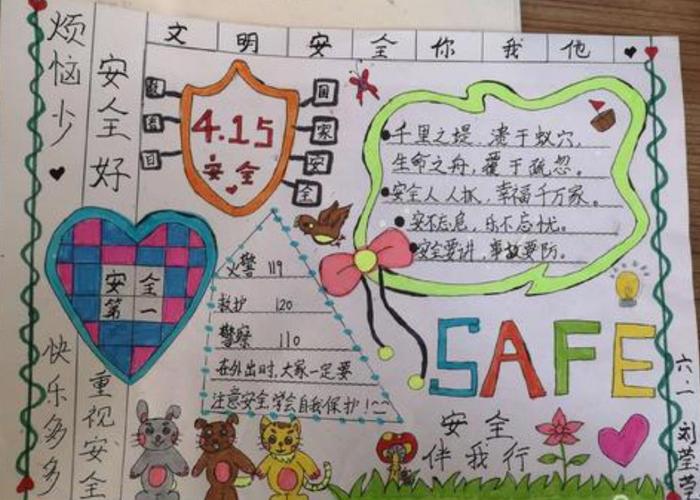 文明安全你我他
烦恼少
安全好
快乐多多
重视安全
4.15
安全
国
家
安
全
教
育
日
千里之堤,溃于蚁穴,
生命之舟,覆于疏忽。
安全人人抓,幸福千万家。
安不忘危,乐不忘忧。
安全要讲,事故要防。
安全
第一
火警 119
救护 120
警察 110
在外出时,大家一定要
注意安全,学会自我保护!
SAFE
安全
伴我行
六一
刘莹